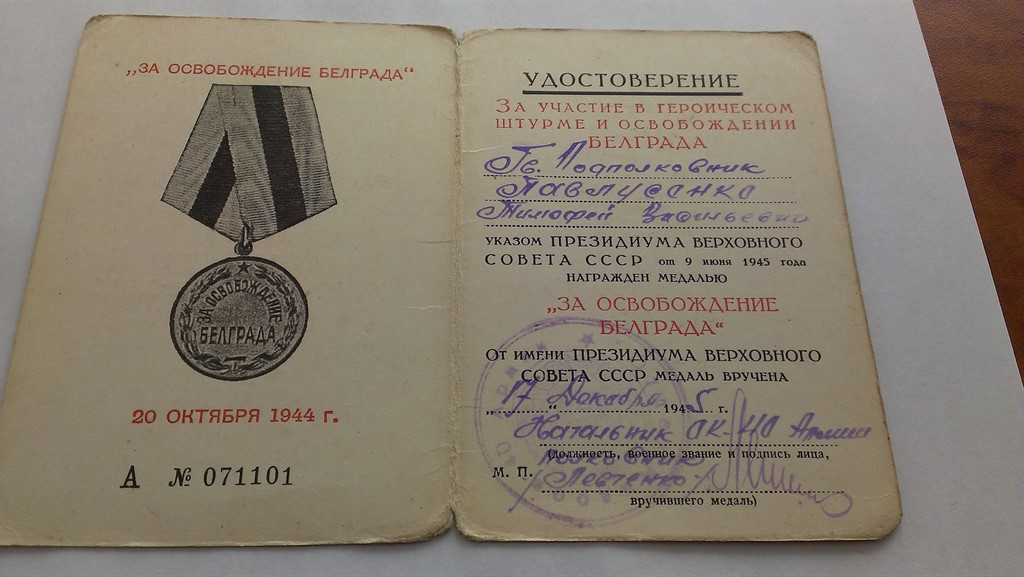 „ЗА ОСВОБОЖДЕНИЕ БЕЛГРАДА“
ЗА ОСВОБОЖДЕНИЕ
БЕЛГРАДА
20 ОКТЯБРЯ 1944 г.
А № 071101
УДОСТОВЕРЕНИЕ
ЗА УЧАСТИЕ В ГЕРОИЧЕСКОМ
ШТУРМЕ И ОСВОБОЖДЕНИИ
БЕЛГРАДА
Гв. Подполковник
Павлусенко
Тимофей Васильевич
УКАЗОМ ПРЕЗИДИУМА ВЕРХОВНОГО
СОВЕТА СССР от 9 июня 1945 года
НАГРАЖДЕН МЕДАЛЬЮ
„ЗА ОСВОБОЖДЕНИЕ
БЕЛГРАДА“
ОТ ИМЕНИ ПРЕЗИДИУМА ВЕРХОВНОГО
СОВЕТА СССР МЕДАЛЬ ВРУЧЕНА
„17“ Декабря 1945 г.
Начальник ОК- Армии
(должность, военное звание и подпись лица,
полковник
М. П. /Левченко-/
вручившего медаль)